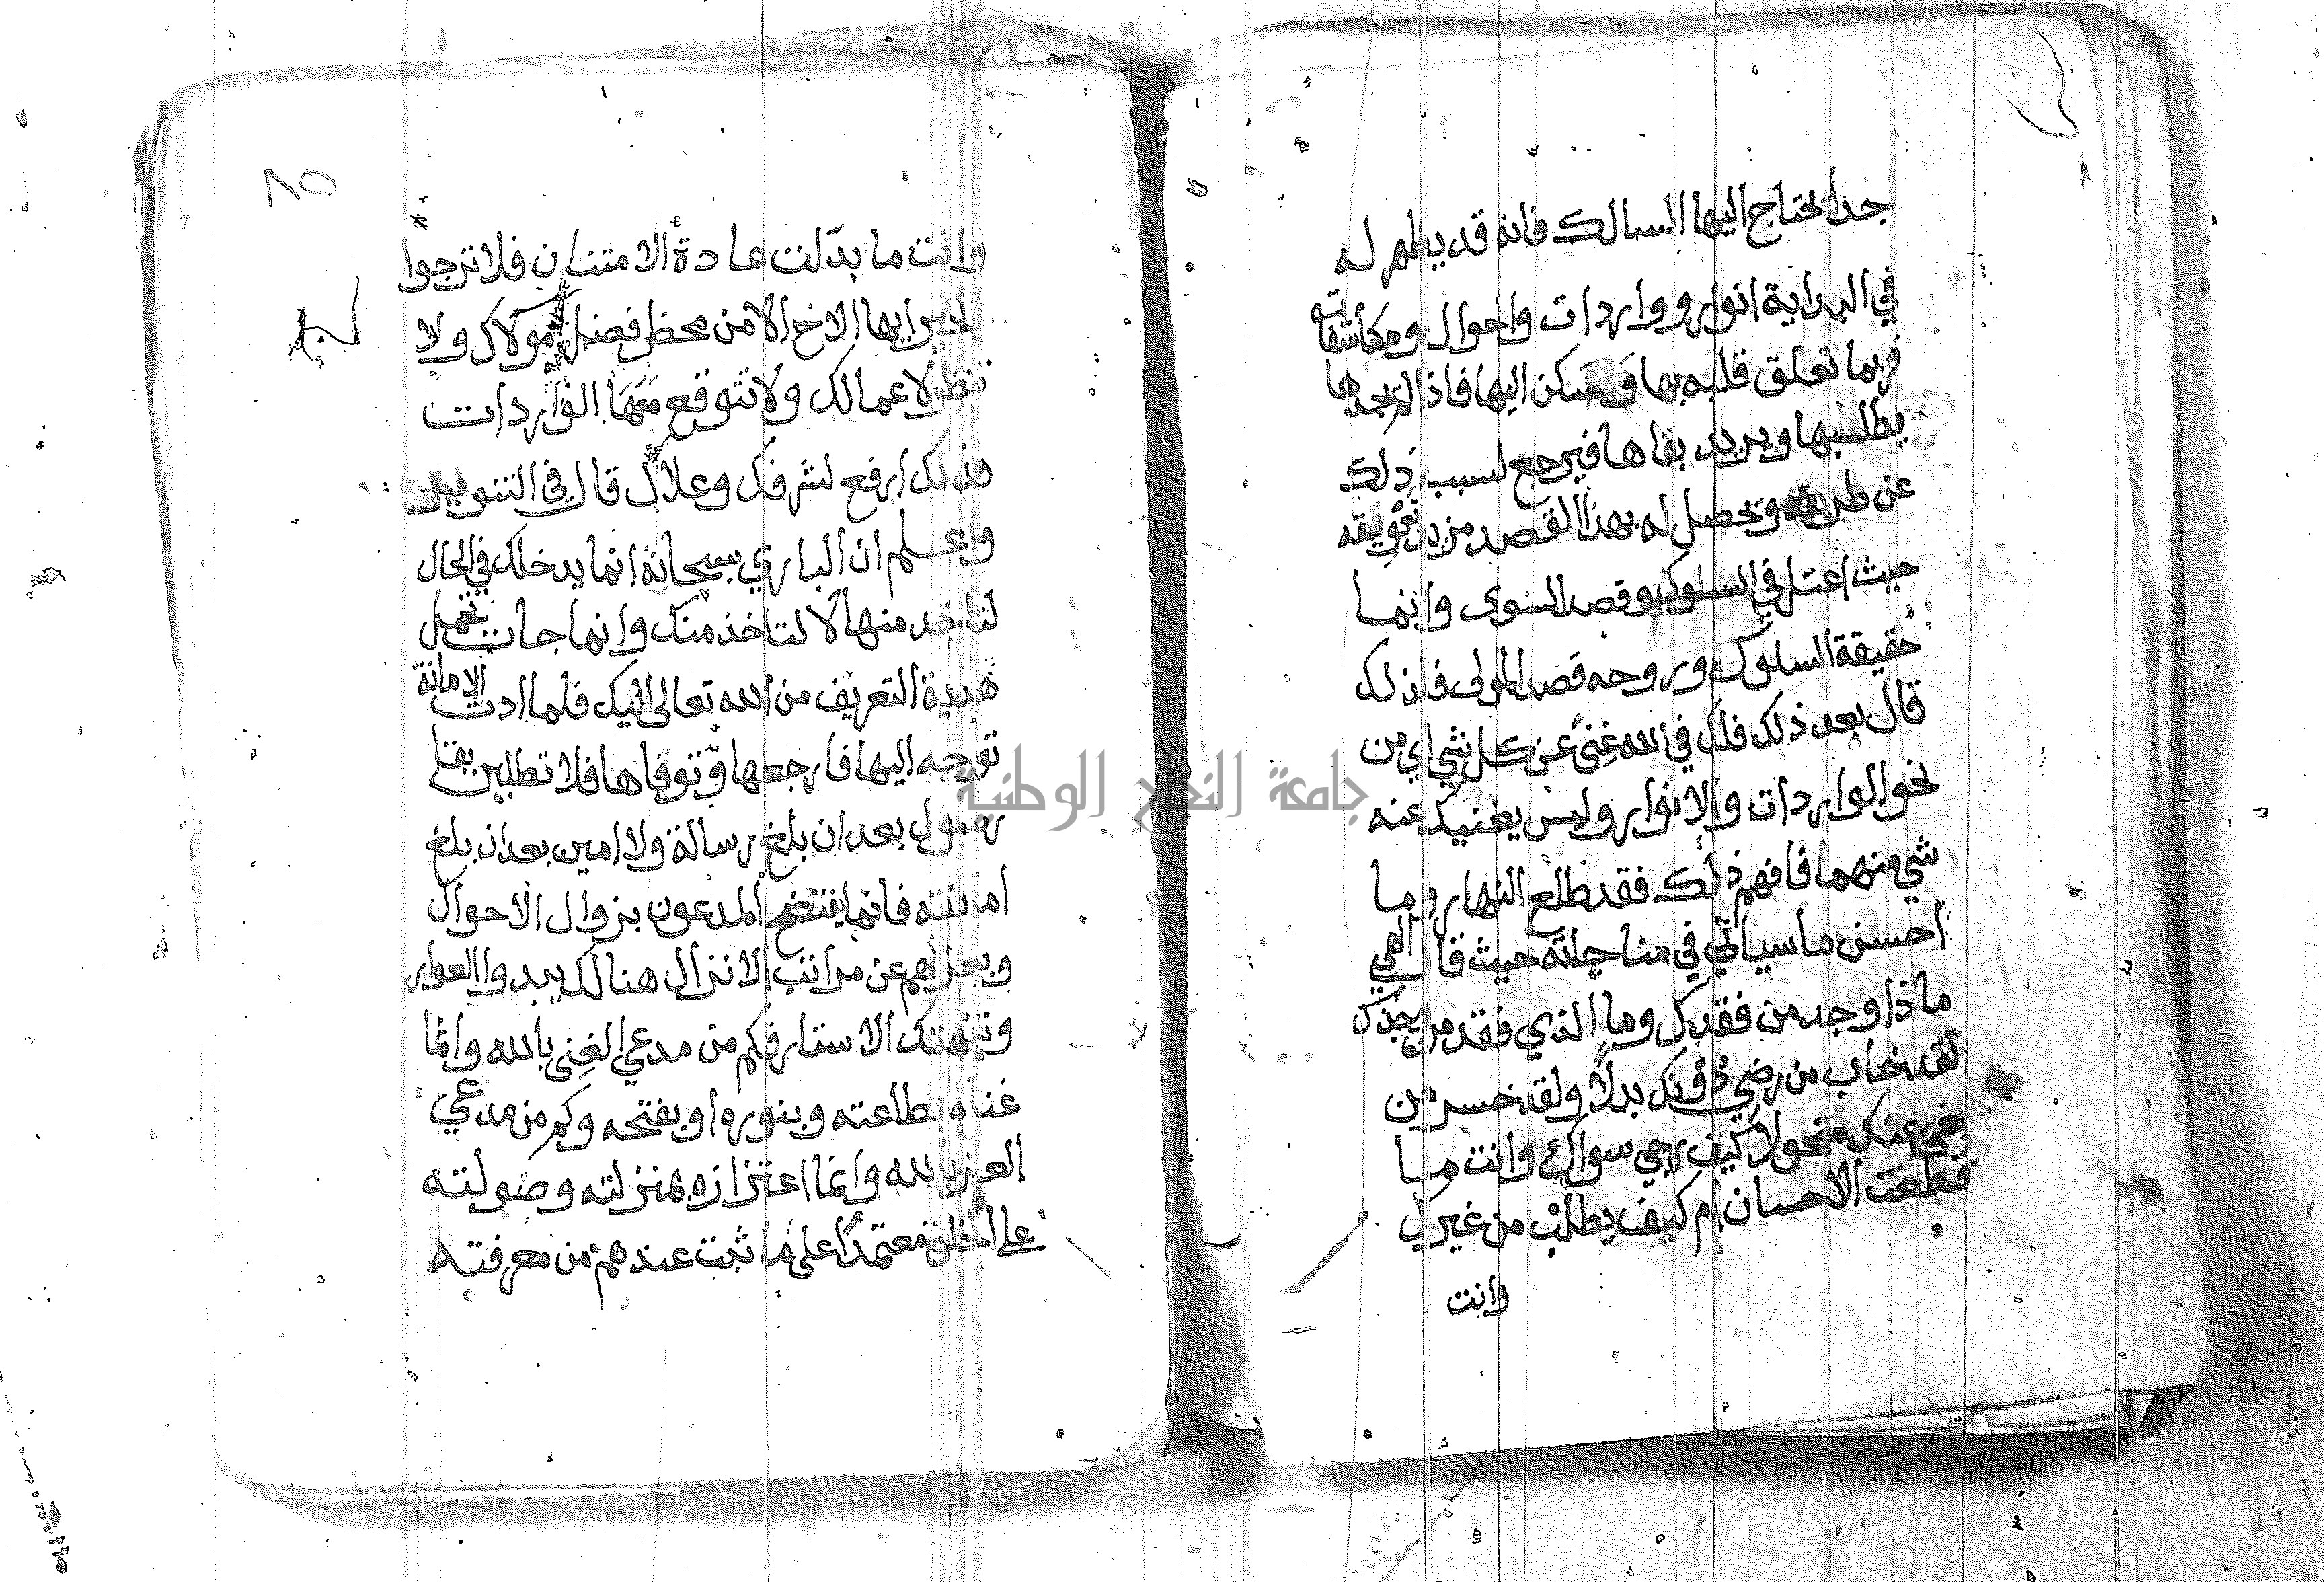 جدا يحتاج اليها السالك فانه قد يظهر له
في البداية انوار وواردات واحوال ومكاشفاته
فربما تعلق قلبه بها وسكن اليها فاذا لم يجدها
يطلبها ويريد بقاها فيرجع لسبب ذلك
عن طريقه وتحصل له بهذا القصد مزيد تعويقه
حيث اعتل في السلوك وقصد السوى وانما
حقيقة السلوك وروحه قصد المولى فلذلك
قال بعد ذلك فلك في الله غنى عن كل شي اي من
نحو الواردات والانوار وليس يغنيك عنه
شي منهما فافهم ذلك فقد طلع النهار وما
احسن ما سياتي في مناجاته حيث قال الهي
ماذا وجد من فقدك وما الذي فقد من وجدك
لقد خاب من رضي دونك بدلا ولقد خسر من
بغى عنك متحولا كيف يرجى سواك وانت ما
قطعت الاحسان ام كيف يطلب من غيرك
وانت
٨٥
وانت ما بدلت عادة الامتنان فلا ترجوا
الخير ايها الاخ الا من محظ فضل مولاك ولا
تنظر لاعمالك ولا تتوقع معها الواردات
فذلك ارفع لشرفك وعلاك قال في التنوير
واعلم ان الباري سبحانه انما يدخلك في الحال
لتاخد منها لا لتاخذ منك وانما جات تحمل
هدية التعريف من الله تعالى اليك فلما ادت الامانة
توجه اليها فارجعها وتوفاها فلا تطلبن بقا
رسول بعد ان بلغ رسالة ولا امين بعد ان بلغ
امانته فانما يفتضح المدعون بزوال الاحوال
وبعزلهم عن مراتب الانزال هنالك يبدوا العوار
وتنهتك الاستار فكم من مدعي الغنى بالله وانما
غناه بطاعته وبنوره او بفتحه وكم من مدعي
العز بالله وانما اعتزازه بمنزلته وصولته
على الخلق معتمدا على ما ثبت عندهم من معرفته
جامعة النجاح الوطنية